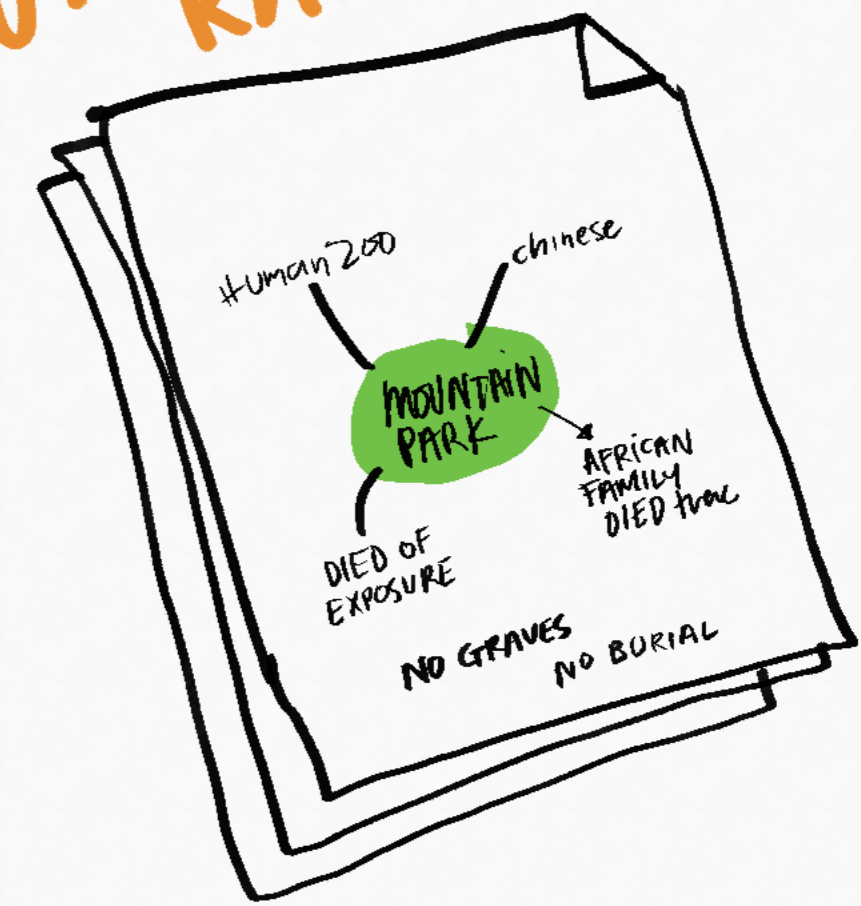 Human Zoo
chinese
MOUNTAIN
PARK
AFRICAN
FAMILY
DIED
DIED OF
EXPOSURE
NO GRAVES
NO BURIAL